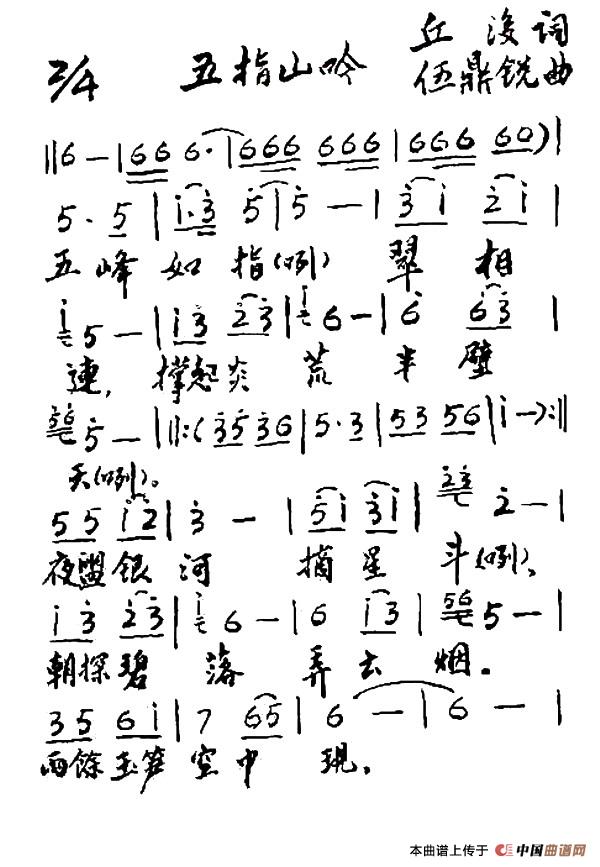 2/4 五指山吟 丘浚词
伍鼎铣曲
‖6 — |666 6· |666 666 |666 60)|
5·5 |i·3 5|5 — |3i 2i|
五峰如指(咧) 翠相
i 5 — |i3 23|i 6 — |6 63|
連,撑起炎荒半壁
56 5 — |‖:(3536|5·3|53 56|i —):‖
天(咧)。
55 i2|3 — |5i 3i|23 2 — |
夜盥银河 摘星斗(咧),
i3 23|i 6 — |6 i3|56 5 — |
朝探碧落弄云烟。
35 6i|7 65|6 — |6 — |
雨餘玉笋空中現,
本曲谱上传于 中国曲谱网